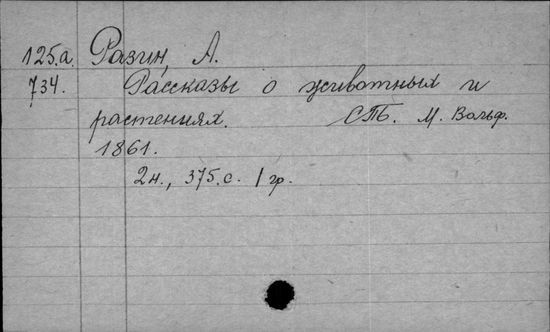 125.а. Разин, А.
734. Рассказы о животных и
растениях. СПБ. М. Вольф.
1861.
2н., 375.с. 1 гр.